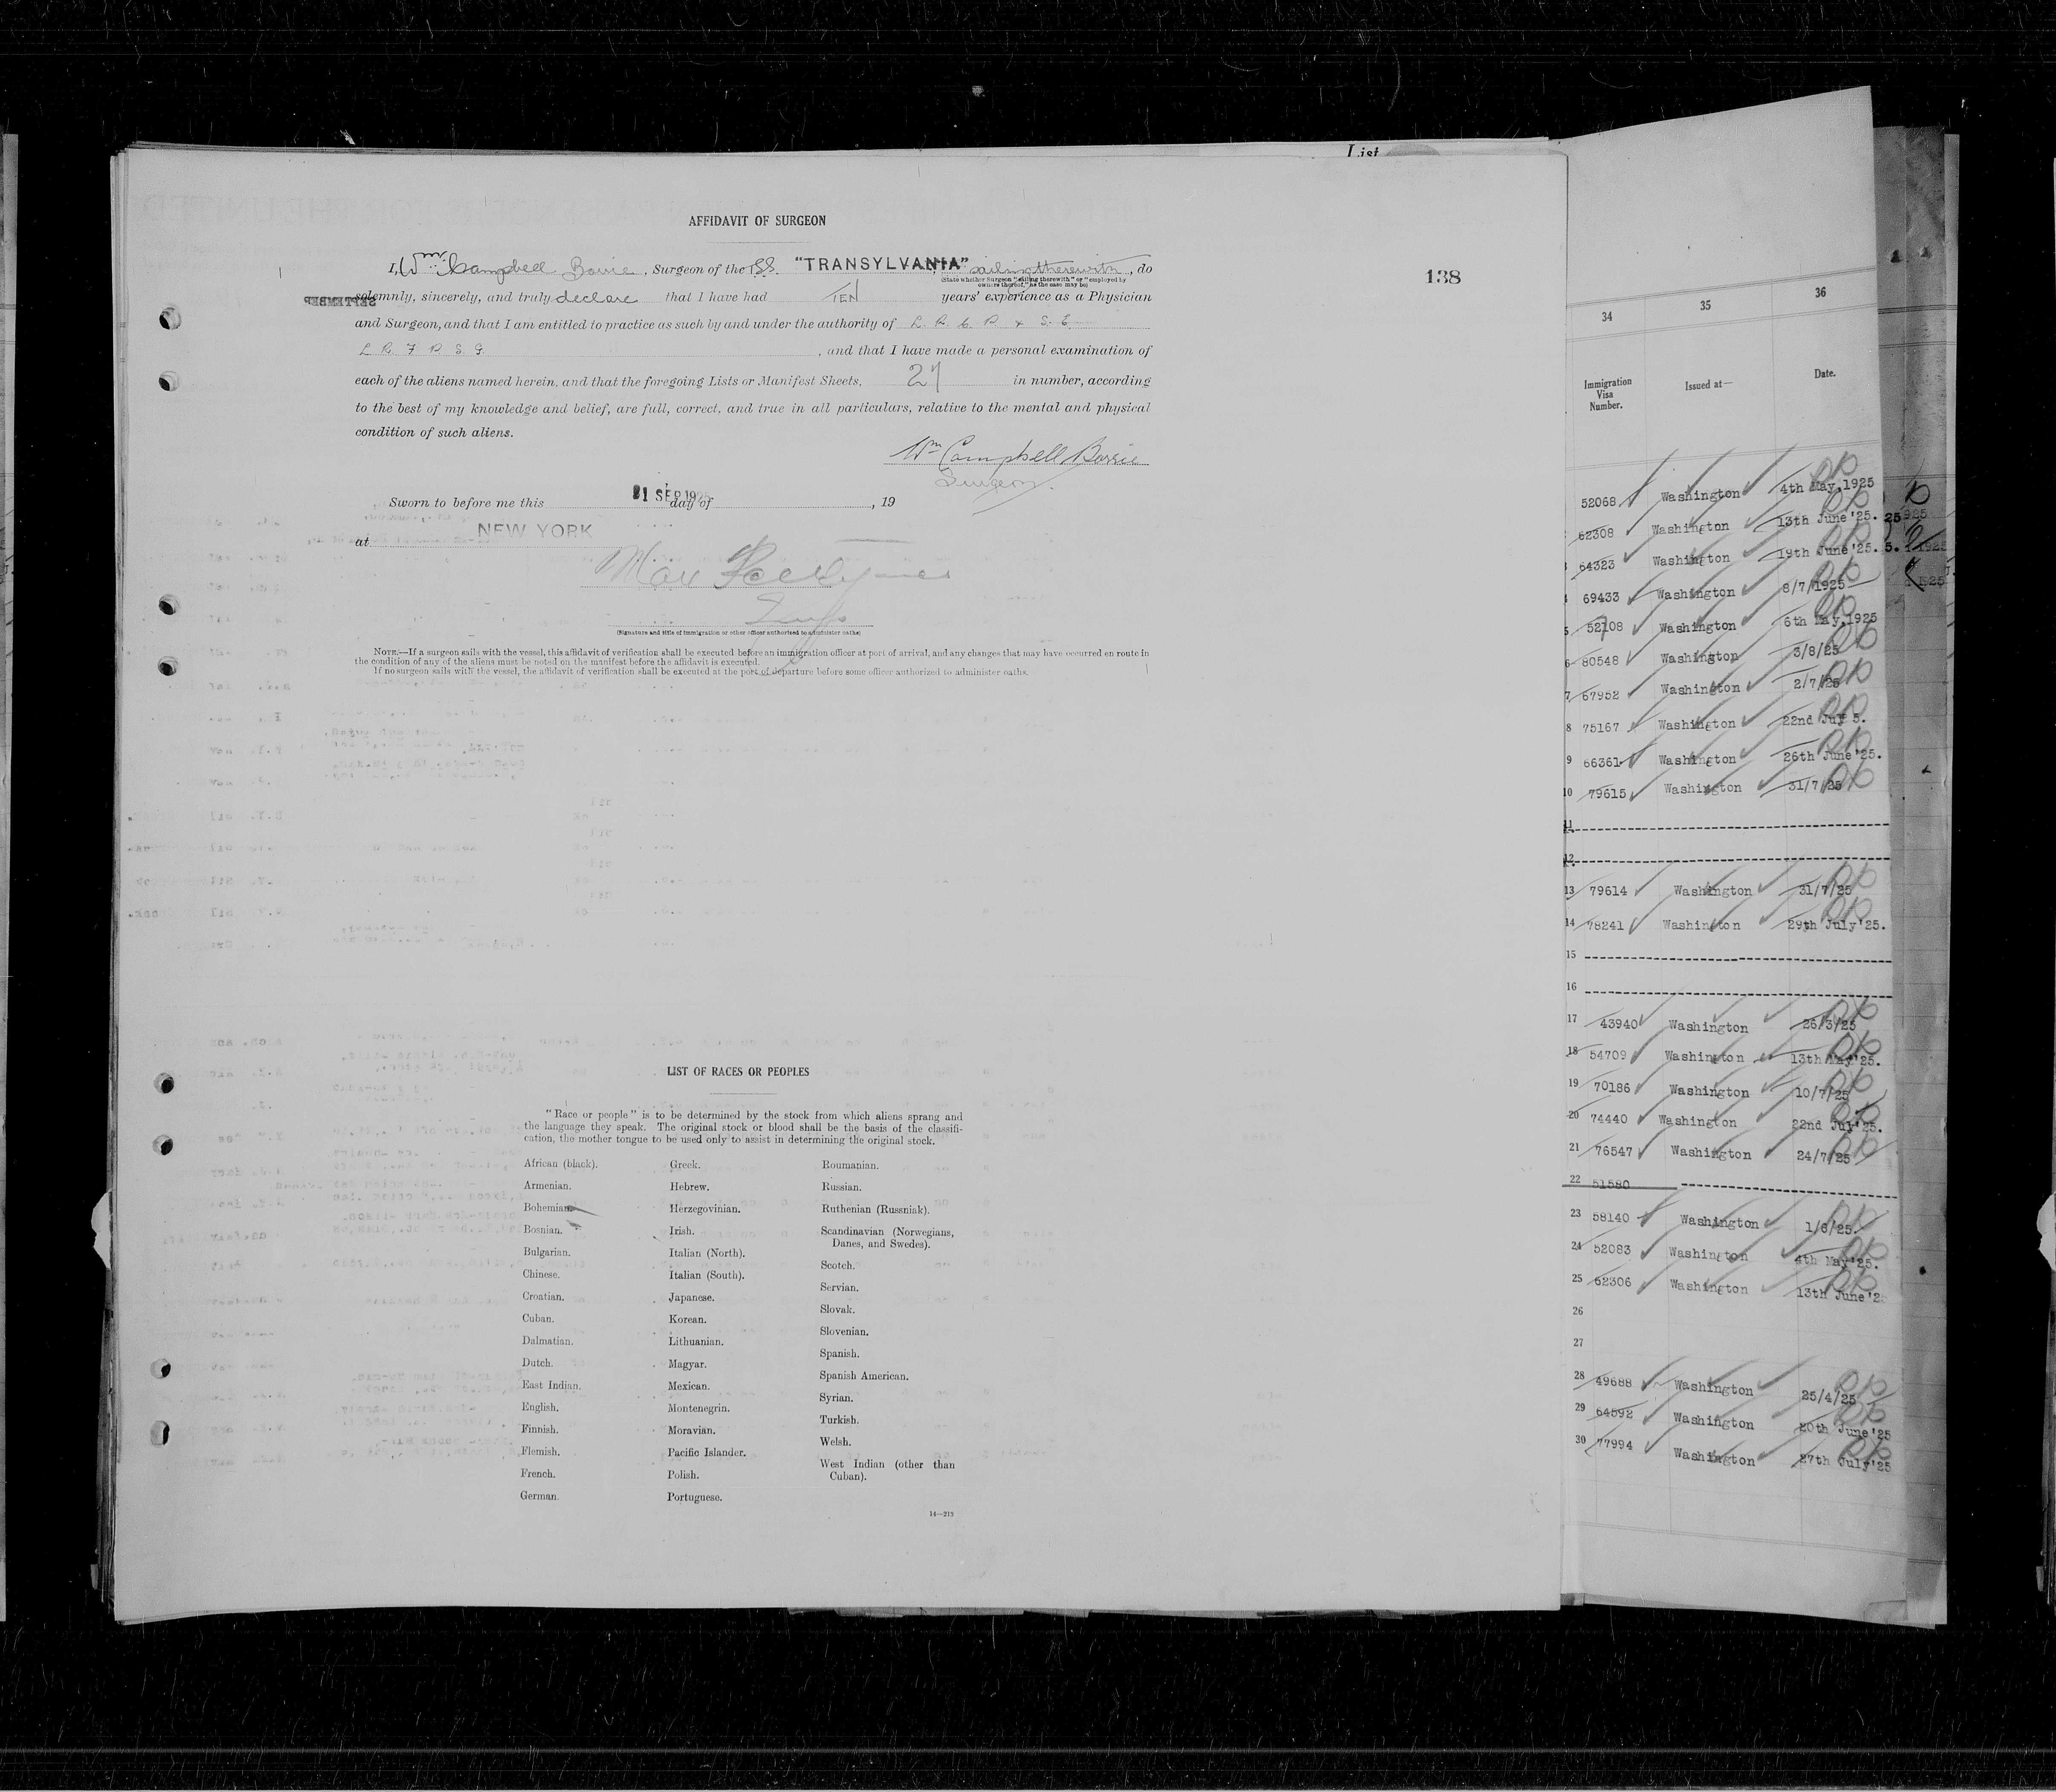 List
AFFIDAVIT OF SURGEON
138
I, Wm. Campbell Barrie, Surgeon of the SS. "TRANSYLVANIA" sailing therewith, do
(State whether Surgeon "sailing therewith" or "employed by
owners thereof," as the case may be)
solemnly, sincerely, and truly declare that I have had TEN years' experience as a Physician
SEPTEMBER
and Surgeon, and that I am entitled to practice as such by and under the authority of L. R. C. P. & S. E.
L. R. F. P. S. G. , and that I have made a personal examination of
each of the aliens named herein, and that the foregoing Lists or Manifest Sheets, 27 in number, according
to the best of my knowledge and belief, are full, correct, and true in all particulars, relative to the mental and physical
condition of such aliens.
Wm Campbell Barrie
Surgeon.
Sworn to before me this 21 SEP 1925 day of , 19
at NEW YORK
Max
(Signature and title of immigration or other officer authorized to administer oaths)
NOTE.—If a surgeon sails with the vessel, this affidavit of verification shall be executed before an immigration officer at port of arrival, and any changes that may have occurred en route in
the condition of any of the aliens must be noted on the manifest before the affidavit is executed.
If no surgeon sails with the vessel, the affidavit of verification shall be executed at the port of departure before some officer authorized to administer oaths.
LIST OF RACES OR PEOPLES
"Race or people" is to be determined by the stock from which aliens sprang and
the language they speak. The original stock or blood shall be the basis of the classifi-
cation, the mother tongue to be used only to assist in determining the original stock.
African (black).
Armenian.
Bohemian.
Bosnian.
Bulgarian.
Chinese.
Croatian.
Cuban.
Dalmatian.
Dutch.
East Indian.
English.
Finnish.
Flemish.
French.
German.
Greek.
Hebrew.
Herzegovinian.
Irish.
Italian (North).
Italian (South).
Japanese.
Korean.
Lithuanian.
Magyar.
Mexican.
Montenegrin.
Moravian.
Pacific Islander.
Polish.
Portuguese.
Roumanian.
Russian.
Ruthenian (Russniak).
Scandinavian (Norwegians,
Danes, and Swedes).
Scotch.
Servian.
Slovak.
Slovenian.
Spanish.
Spanish American.
Syrian.
Turkish.
Welsh.
West Indian (other than
Cuban).
14—213
34 35 36
Immigration
Visa
Number.
Issued at—
Date.
52068 Washington 4th May, 1925
62308 Washington 13th June '25.
64323 Washington 19th June '25.
69433 Washington 8/7/1925
52108 Washington 6th May, 1925
6 80548 Washington 3/8/25
7 67952 Washington 2/7/25
8 75167 Washington 22nd July 5.
9 66361 Washington 26th June '25.
10 79615 Washington 31/7/25
11
12
13 79614 Washington 31/7/25
14 78241 Washington 29th July '25.
15
16
17 43940 Washington 26/3/25
18 54709 Washington 13th May '25.
19 70186 Washington 10/7/25
20 74440 Washington 22nd July '25.
21 76547 Washington 24/7/25
22 51580
23 58140 Washington 1/6/25.
24 52083 Washington 4th May '25.
25 62306 Washington 13th June '2
26
27
28 49688 Washington 25/4/25
29 64592 Washington 20th June '25
30 77994 Washington 27th July '25